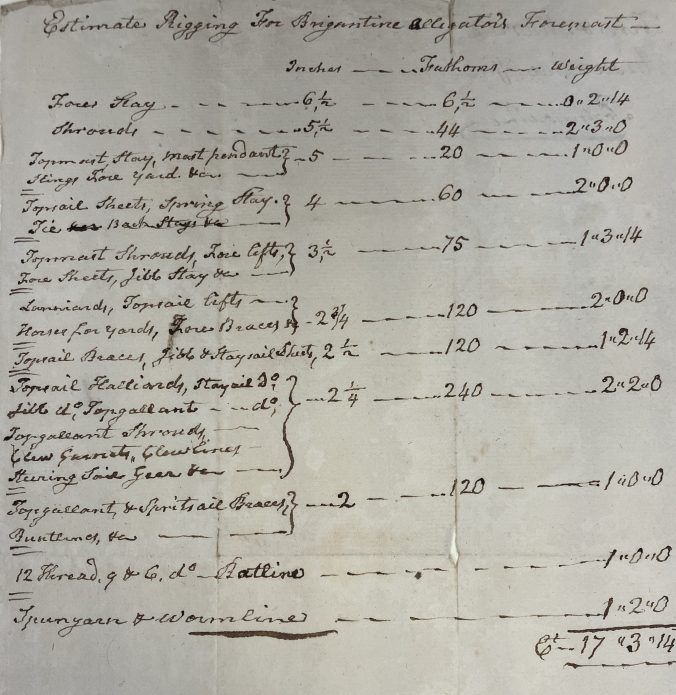 Estimate Rigging For Brigantine alligators Foremast
Inches Fathoms Weight
Fore Stay 6½ 6½ 0"2"14
Shrouds 5½ 44 2"3"0
Topmast, Stay, mast pendant 5 20 1"0"0
Slings Fore Yard &ca
Topsail Sheets, Spring Stay. 4 60 2"0"0
Tie Back Stays &c
Topmast Shrouds, Fore lifts, 3½ 75 1"3"14
Fore Sheets, Jibb Stay &c
Lanniards, Topsail lifts
Horses for Yards, Fore Braces & 2¾ 120 2"0"0
Topsail Braces, Jibb & Staysail Sheets, 2½ 120 1"2"14
Topsail Halliards, Staysail Do, 2¼ 240 2"2"0
Jibb do, Topgallant do,
Topgallant Shrouds,
Clew Garnets, Clewlines
Steering Sail Geer &c
Topgallant, & Spritsail Braces, 2 120 1"0"0
Buntlines, &a
12 Thread, 9 & 6, do Ratline 1"0"0
Spunyarn & Wormline 1"2"0
Ct 17"3"14